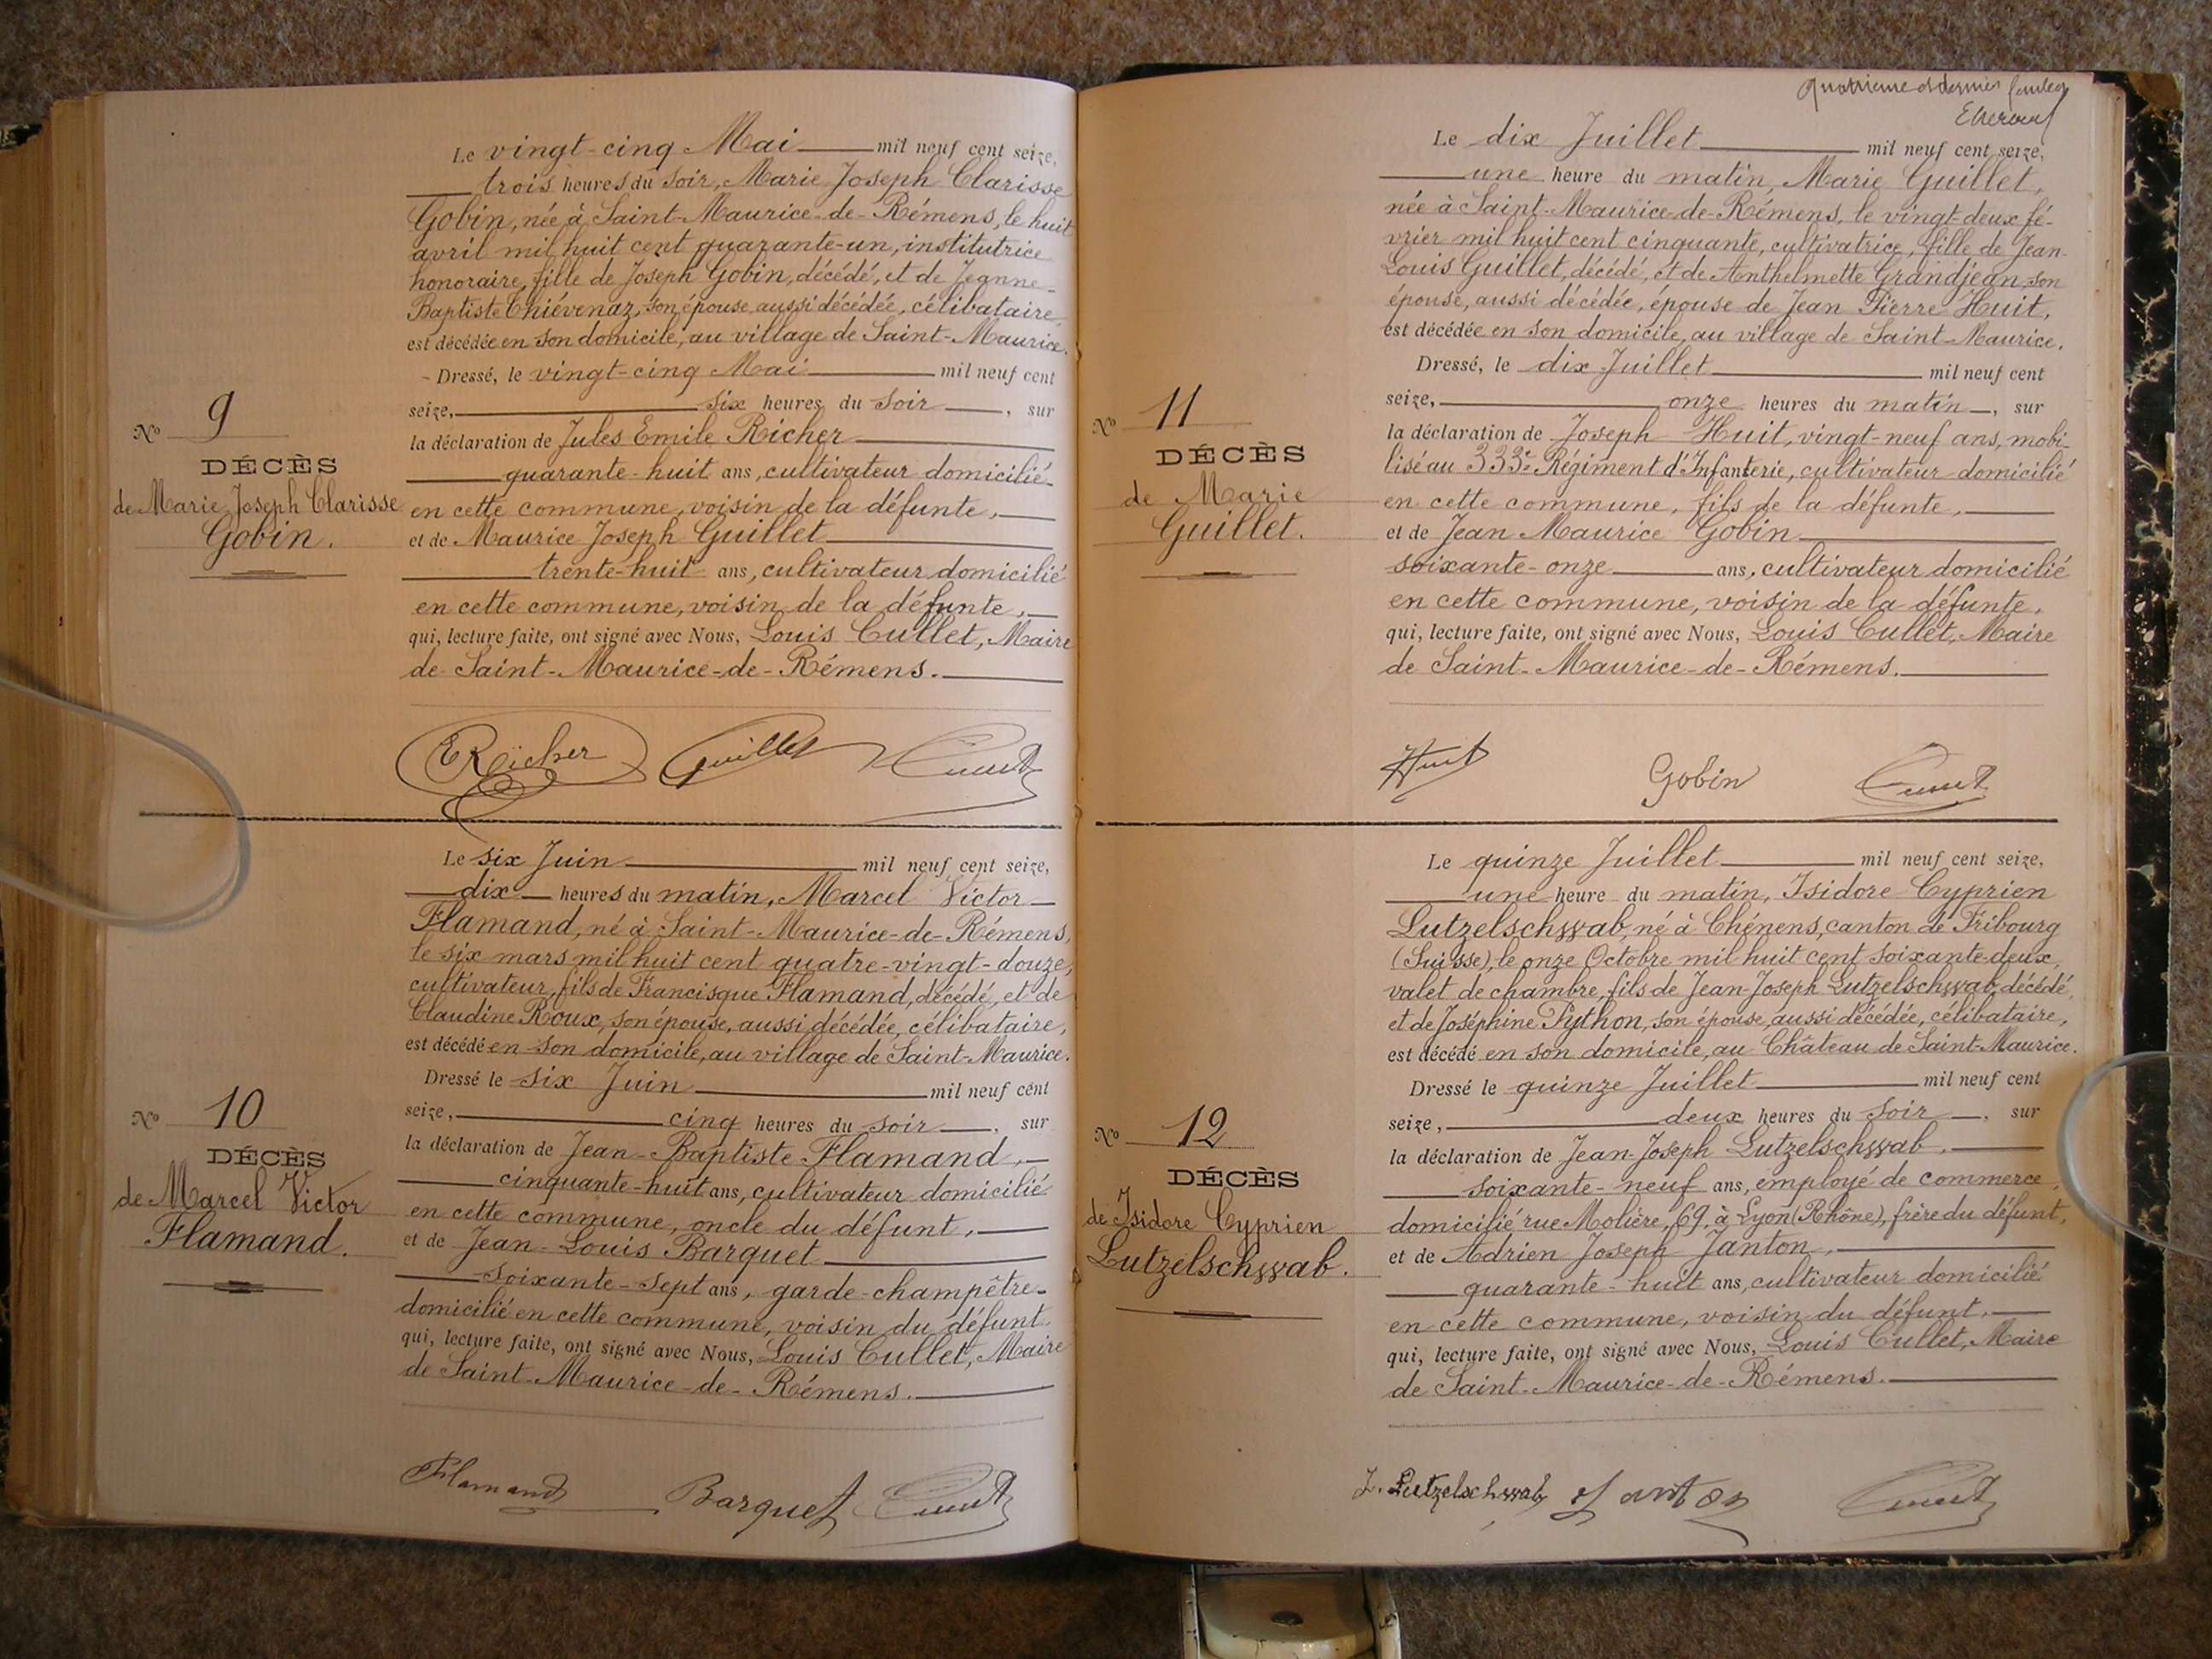 Le vingt-cinq Mai mil neuf cent seize,
trois heures du soir, Marie Joseph Clarisse
Gobin, née à Saint-Maurice-de-Rémens, le huit
avril mil huit cent quarante-un, institutrice
honoraire, fille de Joseph Gobin, décédé, et de Jeanne-
Baptiste Chiévenaz, son épouse, aussi décédée, célibataire,
est décédée en son domicile, au village de Saint-Maurice.
- Dressé, le vingt-cinq Mai mil neuf cent
seize, six heures du soir, sur
la déclaration de Jules Emile Richer
quarante-huit ans, cultivateur domicilié
en cette commune, voisin de la défunte,
et de Maurice Joseph Guillet
trente-huit ans, cultivateur domicilié
en cette commune, voisin de la défunte,
qui, lecture faite, ont signé avec Nous, Louis Cullet, Maire
de Saint-Maurice-de-Rémens.
No 9
DÉCÈS
de Marie Joseph Clarisse
Gobin.
ERicher Guillet Cullet
Le six Juin mil neuf cent seize,
dix heures du matin, Marcel Victor
Flamand, né à Saint-Maurice-de-Rémens,
le six mars mil huit cent quatre-vingt-douze,
cultivateur, fils de Francisque Flamand, décédé, et de
Claudine Roux, son épouse, aussi décédée, célibataire,
est décédé en son domicile, au village de Saint-Maurice.
Dressé le six Juin mil neuf cent
seize, cinq heures du soir, sur
la déclaration de Jean-Baptiste Flamand,
cinquante-huit ans, cultivateur domicilié
en cette commune, oncle du défunt,
et de Jean-Louis Barquet
soixante-sept ans, garde-champêtre
domicilié en cette commune, voisin du défunt.
qui, lecture faite, ont signé avec Nous, Louis Cullet, Maire
de Saint-Maurice-de-Rémens.
No 10
DÉCÈS
de Marcel Victor
Flamand.
Flamand Barquet Cullet
Quatrième et dernier feuillet
Le dix Juillet mil neuf cent seize,
une heure du matin, Marie Guillet,
née à Saint-Maurice-de-Rémens, le vingt-deux fé-
vrier mil huit cent cinquante, cultivatrice, fille de Jean-
Louis Guillet, décédé, et de Anthelmette Grandjean, son
épouse, aussi décédée, épouse de Jean Pierre Huit,
est décédée en son domicile, au village de Saint-Maurice.
Dressé, le dix Juillet mil neuf cent
seize, onze heures du matin, sur
la déclaration de Joseph Huit, vingt-neuf ans, mobi-
lisé au 333e Régiment d'Infanterie, cultivateur domicilié
en cette commune, fils de la défunte,
et de Jean Maurice Gobin
soixante-onze ans, cultivateur domicilié
en cette commune, voisin de la défunte.
qui, lecture faite, ont signé avec Nous, Louis Cullet, Maire
de Saint-Maurice-de-Rémens.
No 11
DÉCÈS
de Marie
Guillet.
Huit Gobin Cullet
Le quinze Juillet mil neuf cent seize,
une heure du matin, Isidore Cyprien
Lutzelschwab, né à Chénens, canton de Fribourg
(Suisse), le onze Octobre mil huit cent soixante-deux,
valet de chambre, fils de Jean-Joseph Lutzelschwab, décédé,
et de Joséphine Python, son épouse, aussi décédée, célibataire,
est décédé en son domicile, au Château de Saint-Maurice.
Dressé le quinze Juillet mil neuf cent
seize, deux heures du soir, sur
la déclaration de Jean-Joseph Lutzelschwab,
soixante-neuf ans, employé de commerce,
domicilié rue Molière, 69, à Lyon (Rhône), frère du défunt,
et de Adrien Joseph Janton,
quarante-huit ans, cultivateur domicilié
en cette commune, voisin du défunt,
qui, lecture faite, ont signé avec Nous, Louis Cullet, Maire
de Saint-Maurice-de-Rémens.
No 12
DÉCÈS
de Isidore Cyprien
Lutzelschwab.
J. Lutzelschwab Janton Cullet